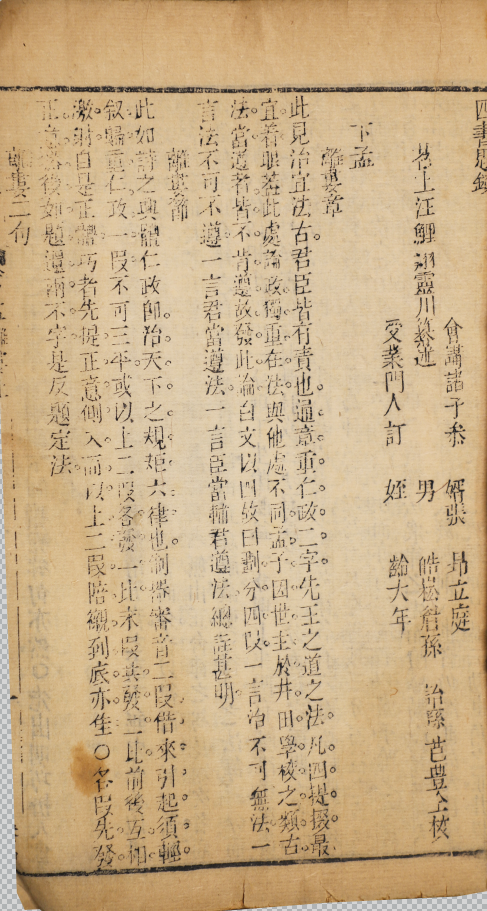 四書題鏡
苕上汪鯉翔靈川纂述
會講諸子叅 婿張昂立庭
男皓崧詹孫 詒孫芑豊仝校
受業門人訂 姪齡大年
下孟
離婁章
此見治宜法古君臣皆有責也通章重仁政二字先王之道之法凡四提掇最
宜着眼葢此處論政獨重在法與他處不同孟子因世主於井田學校之類古
法當遵者皆不肯遵故發此論白文以四故曰劃分四段一言治不可無法一
言法不可不遵一言君當遵法一言臣當輔君遵法總註甚明
離婁節
此如詩之興體仁政即治天下之規矩六律也制器審音二段借來引起須輕
叙歸重仁政一段不可三平或以上二段各發一比末段共發二比前後互相
激射自是正體巧者先提正意側入而以上二段陪襯到底亦佳○各段先發
正意然後如題還兩不字是反題定法
離婁二句